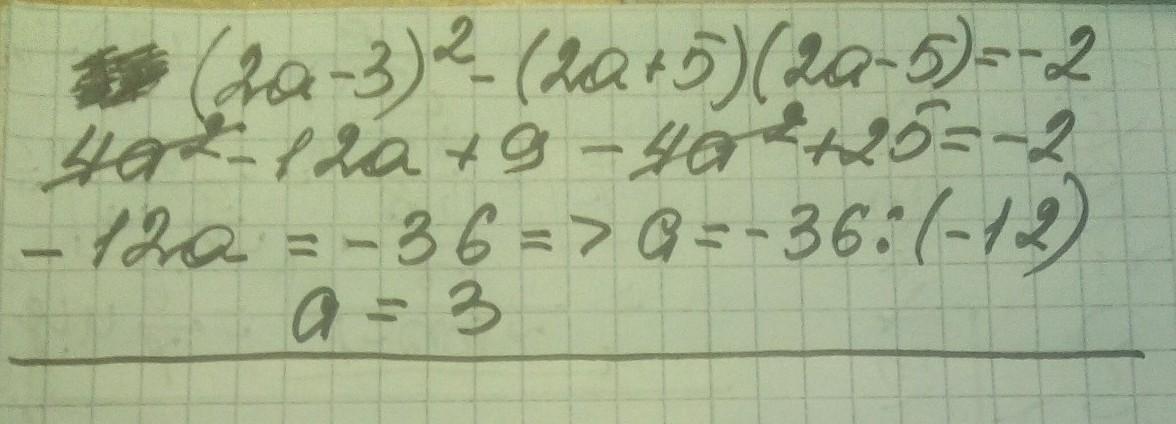 (2a-3)²-(2a+5)(2a-5)=-2
4a²-12a+9-4a²+25=-2
-12a=-36=>a=-36:(-12)
a=3